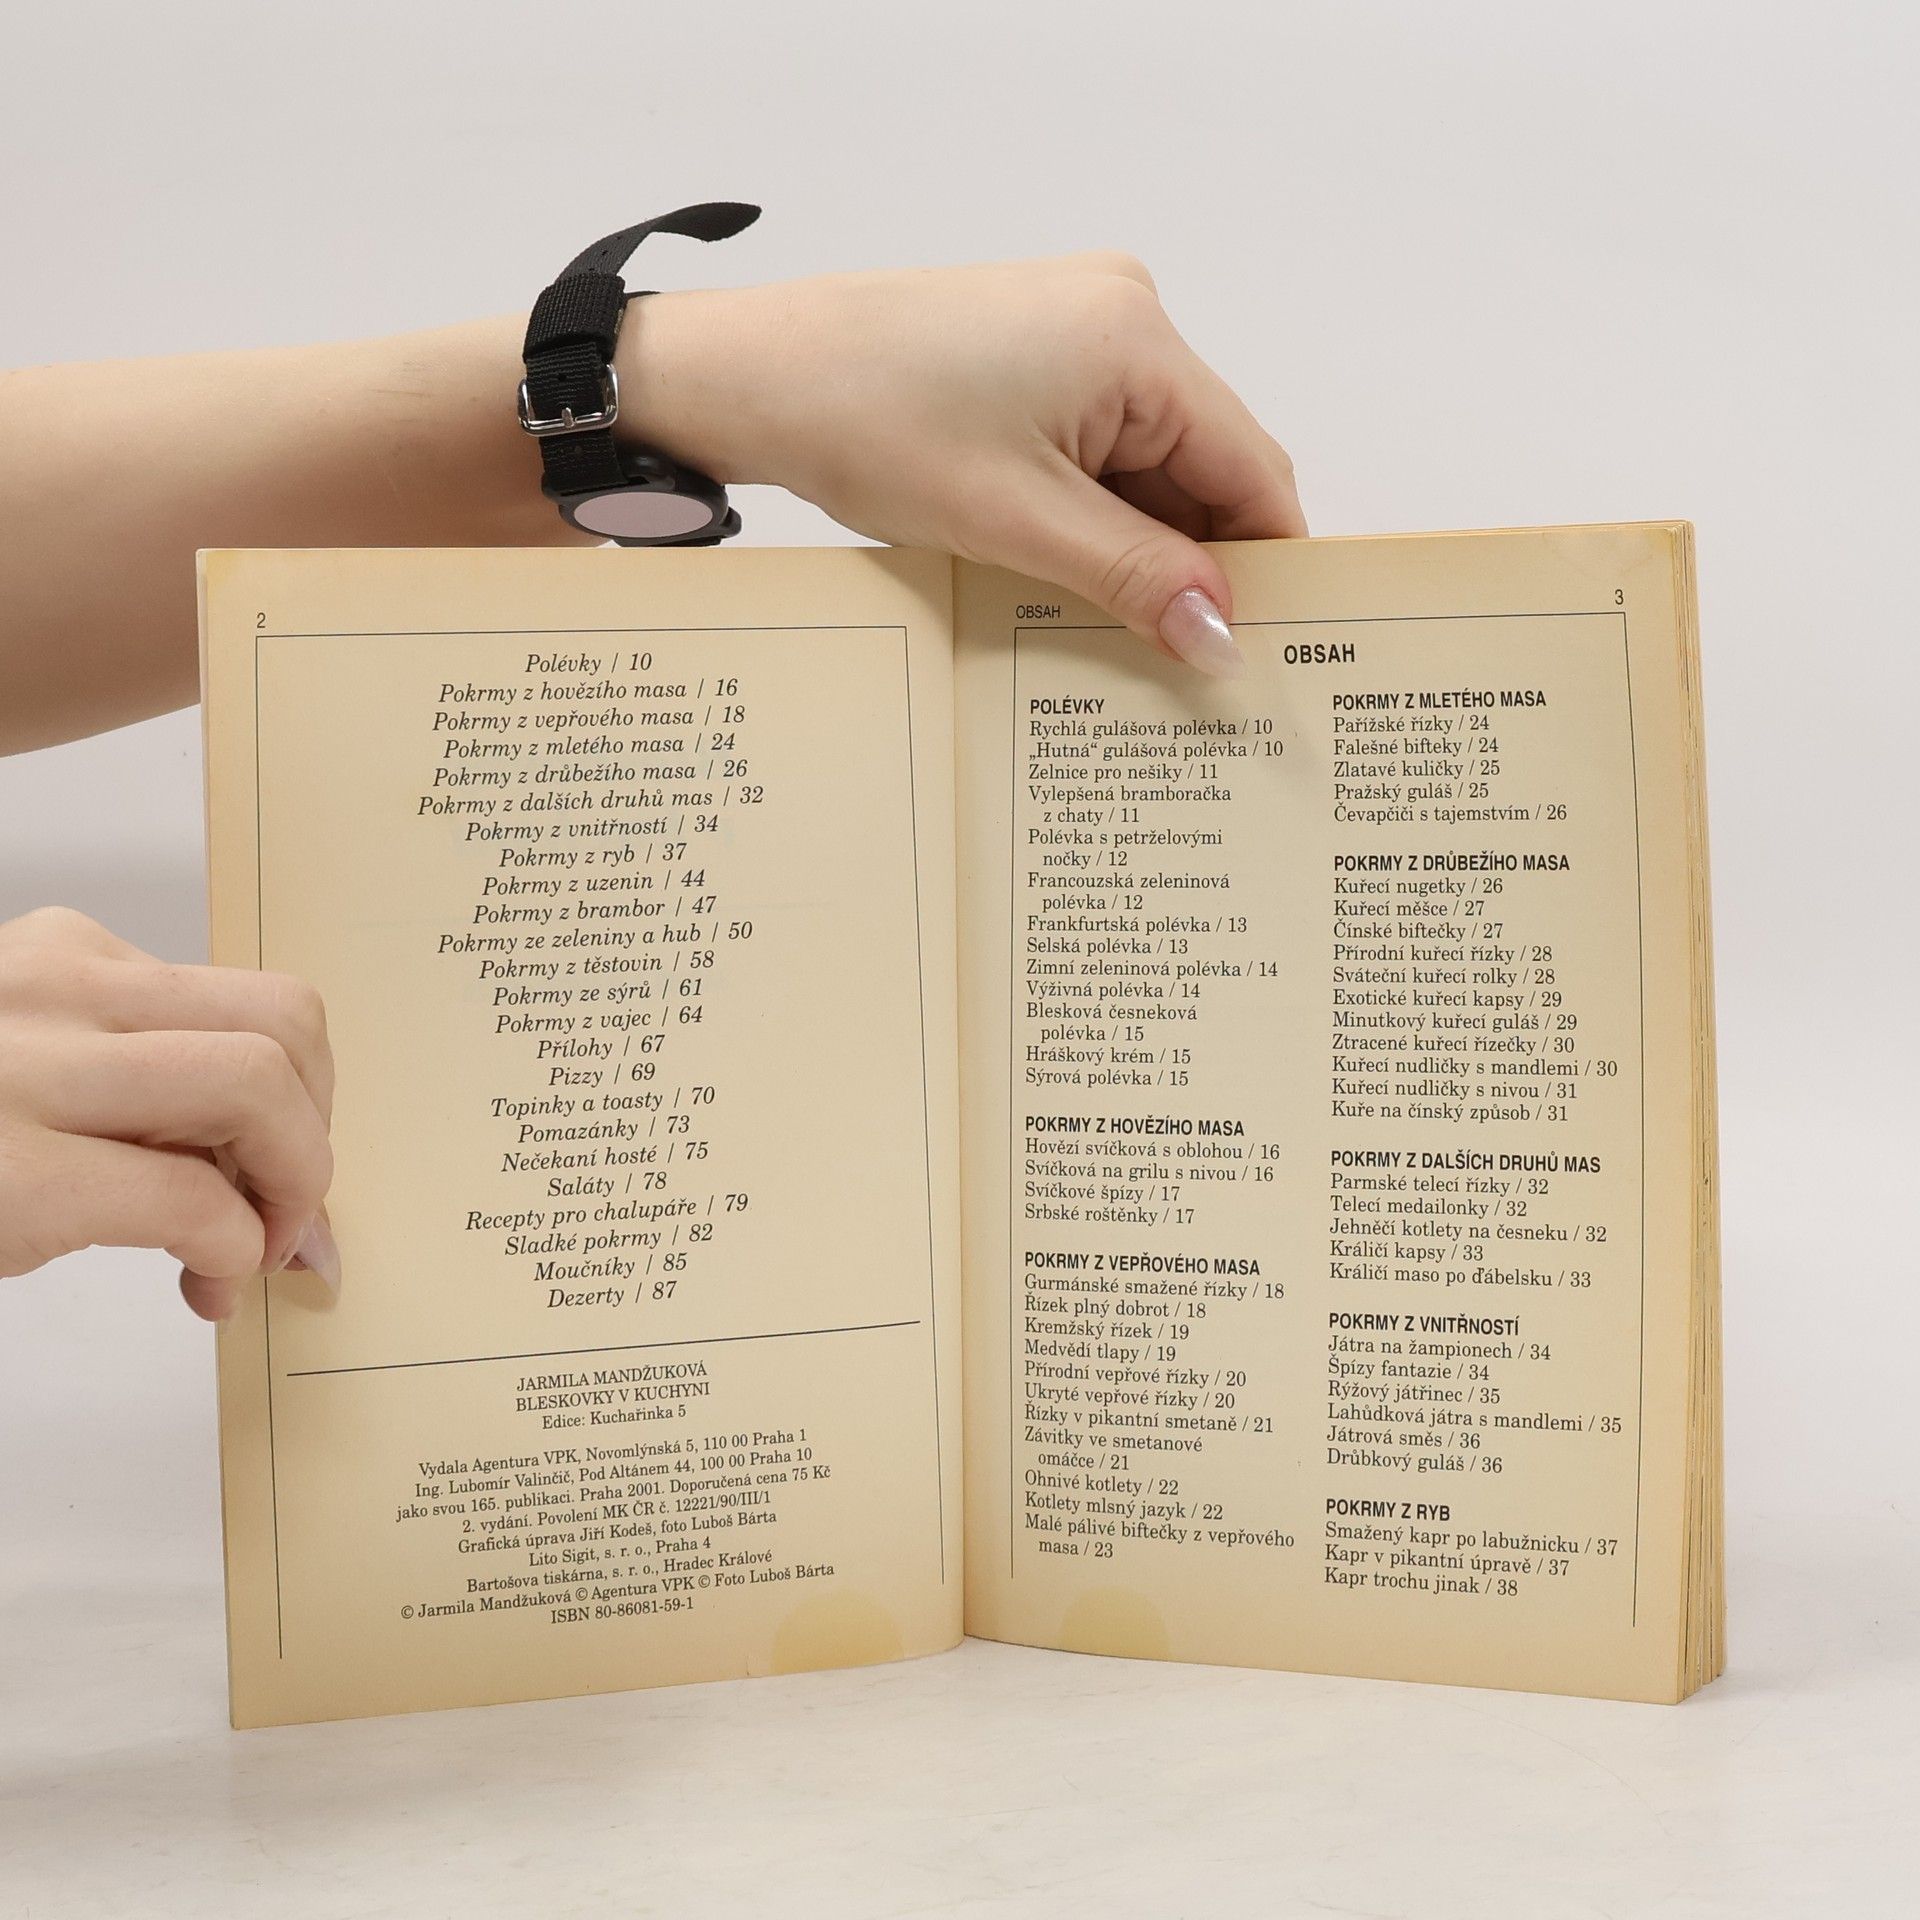 2
Polévky / 10
Pokrmy z hovězího masa / 16
Pokrmy z vepřového masa / 18
Pokrmy z mletého masa / 24
Pokrmy z drůbežího masa / 26
Pokrmy z dalších druhů mas / 32
Pokrmy z vnitřností / 34
Pokrmy z ryb / 37
Pokrmy z uzenin / 44
Pokrmy z brambor / 47
Pokrmy ze zeleniny a hub / 50
Pokrmy z těstovin / 58
Pokrmy ze sýrů / 61
Pokrmy z vajec / 64
Přílohy / 67
Pizzy / 69
Topinky a toasty / 70
Pomazánky / 73
Nečekaní hosté / 75
Saláty / 78
Recepty pro chalupáře / 79
Sladké pokrmy / 82
Moučníky / 85
Dezerty / 87
JARMILA MANDŽUKOVÁ
BLESKOVKY V KUCHYNI
Edice: Kuchařinka 5
Vydala Agentura VPK, Novomlýnská 5, 110 00 Praha 1
Ing. Lubomír Valinčič, Pod Altánem 44, 100 00 Praha 10
jako svou 165. publikaci. Praha 2001. Doporučená cena 75 Kč
2. vydání. Povolení MK ČR č. 12221/90/III/1
Grafická úprava Jiří Kodeš, foto Luboš Bárta
Lito Sigit, s. r. o., Praha 4
Bartošova tiskárna, s. r. o., Hradec Králové
© Jarmila Mandžuková © Agentura VPK © Foto Luboš Bárta
ISBN 80-86081-59-1
OBSAH
3
OBSAH
POLÉVKY
Rychlá gulášová polévka / 10
„Hutná“ gulášová polévka / 10
Zelnice pro nešiky / 11
Vylepšená bramboračka
z chaty / 11
Polévka s petrželovými
nočky / 12
Francouzská zeleninová
polévka / 12
Frankfurtská polévka / 13
Selská polévka / 13
Zimní zeleninová polévka / 14
Výživná polévka / 14
Blesková česneková
polévka / 15
Hráškový krém / 15
Sýrová polévka / 15
POKRMY Z HOVĚZÍHO MASA
Hovězí svíčková s oblohou / 16
Svíčková na grilu s nivou / 16
Svíčkové špízy / 17
Srbské roštěnky / 17
POKRMY Z VEPŘOVÉHO MASA
Gurmánské smažené řízky / 18
Řízek plný dobrot / 18
Kremžský řízek / 19
Medvědí tlapy / 19
Přírodní vepřové řízky / 20
Ukryté vepřové řízky / 20
Řízky v pikantní smetaně / 21
Závitky ve smetanové
omáčce / 21
Ohnivé kotlety / 22
Kotlety mlsný jazyk / 22
Malé pálivé biftečky z vepřového
masa / 23
POKRMY Z MLETÉHO MASA
Pařížské řízky / 24
Falešné bifteky / 24
Zlatavé kuličky / 25
Pražský guláš / 25
Čevapčiči s tajemstvím / 26
POKRMY Z DRŮBEŽÍHO MASA
Kuřecí nugetky / 26
Kuřecí měšce / 27
Čínské biftečky / 27
Přírodní kuřecí řízky / 28
Sváteční kuřecí rolky / 28
Exotické kuřecí kapsy / 29
Minutkový kuřecí guláš / 29
Ztracené kuřecí řízečky / 30
Kuřecí nudličky s mandlemi / 30
Kuřecí nudličky s nivou / 31
Kuře na čínský způsob / 31
POKRMY Z DALŠÍCH DRUHŮ MAS
Parmské telecí řízky / 32
Telecí medailonky / 32
Jehněčí kotlety na česneku / 32
Králičí kapsy / 33
Králičí maso po ďábelsku / 33
POKRMY Z VNITŘNOSTÍ
Játra na žampionech / 34
Špízy fantazie / 34
Rýžový játřinec / 35
Lahůdková játra s mandlemi / 35
Játrová směs / 36
Drůbkový guláš / 36
POKRMY Z RYB
Smažený kapr po labužnicku / 37
Kapr v pikantní úpravě / 37
Kapr trochu jinak / 38